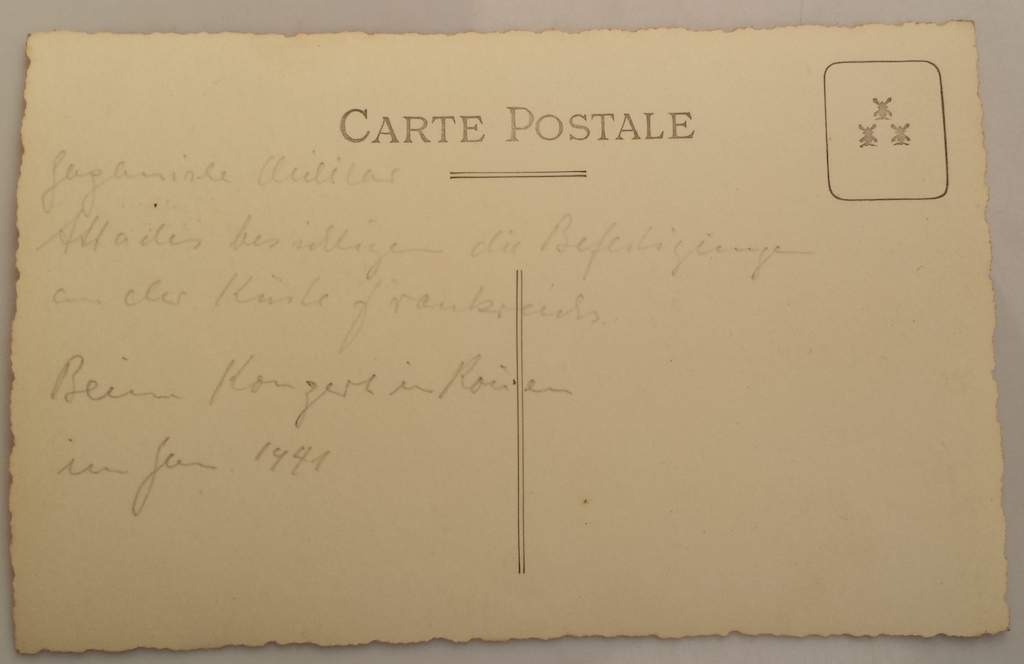 CARTE POSTALE
Japanische Militär
Attachés besichtigen die Befestigungen
an der Küste Frankreichs.
Beim Konzert in Rouen
im Jan. 1941